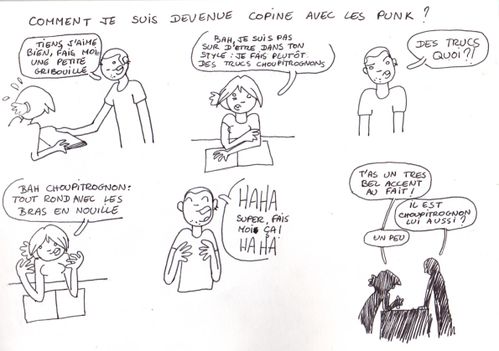 COMMENT JE SUIS DEVENUE COPINE AVEC LES PUNK ?
TIENS J'AIME
BIEN, FAIS MOI
UNE PETITE
GRIBOUILLE
BAH, JE SUIS PAS
SUR D'ETRE DANS TON
STYLE : JE FAIS PLUTÔT
DES TRUCS CHOUPITROGNONS
DES TRUCS
QUOI ?!
BAH CHOUPITROGNON :
TOUT ROND AVEC LES
BRAS EN NOUILLE
HAHA
SUPER, FAIS
MOI ÇA !
HA HA
T'AS UN TRES
BEL ACCENT
AU FAIT !
IL EST
CHOUPITROGNON
LUI AUSSI ?
UN PEU